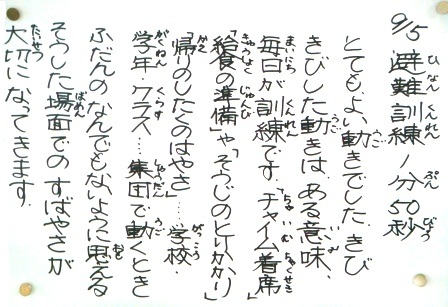 9/5 避難訓練 1分50秒
とてもよい動きでした。きび
きびした動きは、ある意味、
毎日が訓練です。「チャイム着席」
「給食の準備」や「そうじのとりかかり」
「帰りのしたくのはやさ」…学校・
学年・クラス…集団で動くとき
ふだんのなんでもないように思える
そうした場面でのすばやさが
大切になってきます。